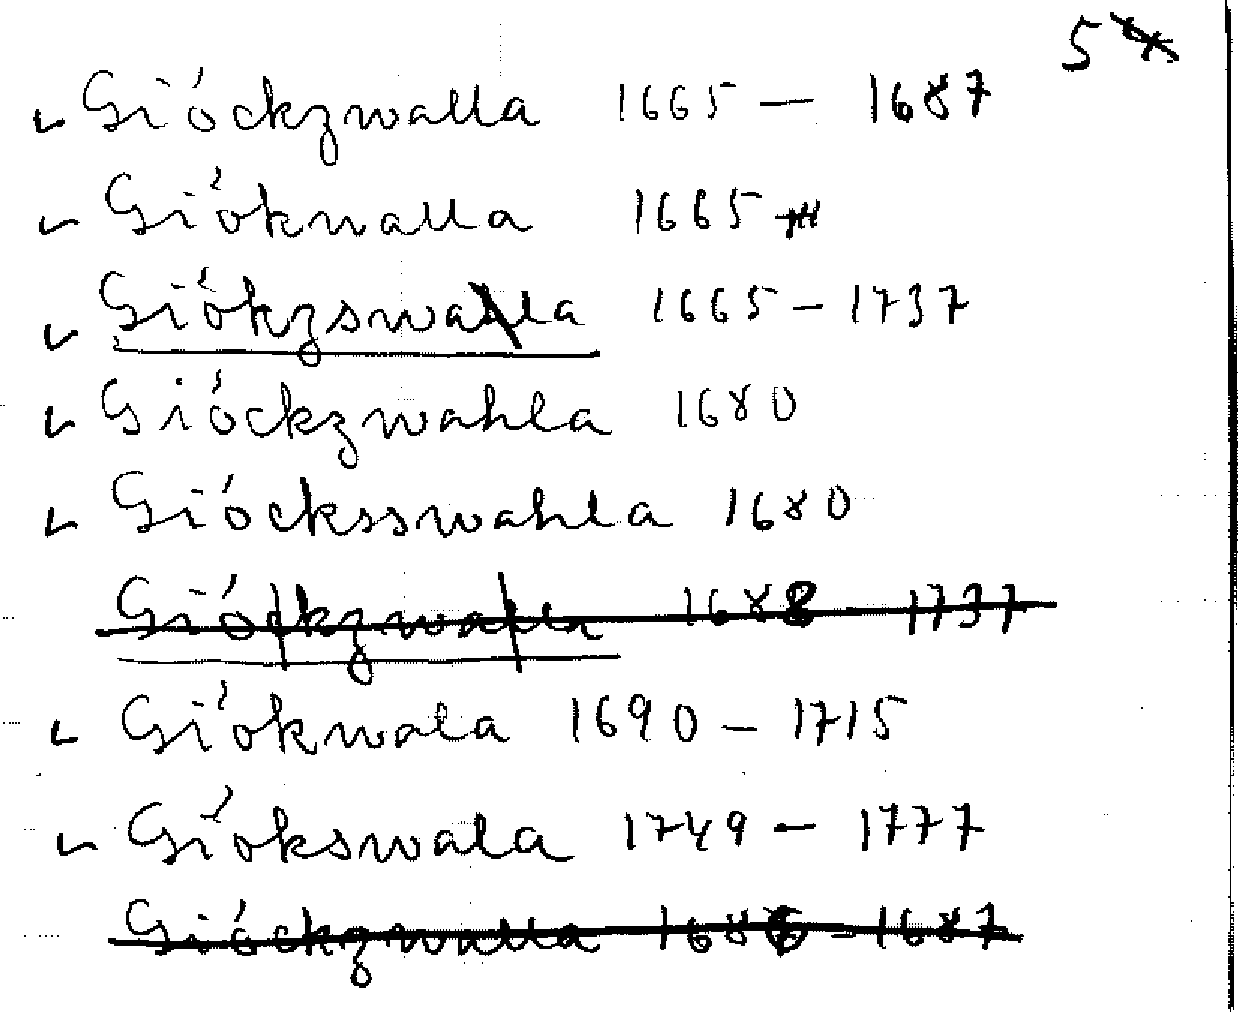 5
Gióckzwalla 1665 – 1687
Gióknalla 1665
Giókzswalla 1665 – 1737
Gióckzwahla 1680
Giócksswahla 1680
Gióckzwalla 1688 1737
Giókwala 1690 – 1715
Giókswala 1749 – 1777
Gióckzwalla 1686 – 1687